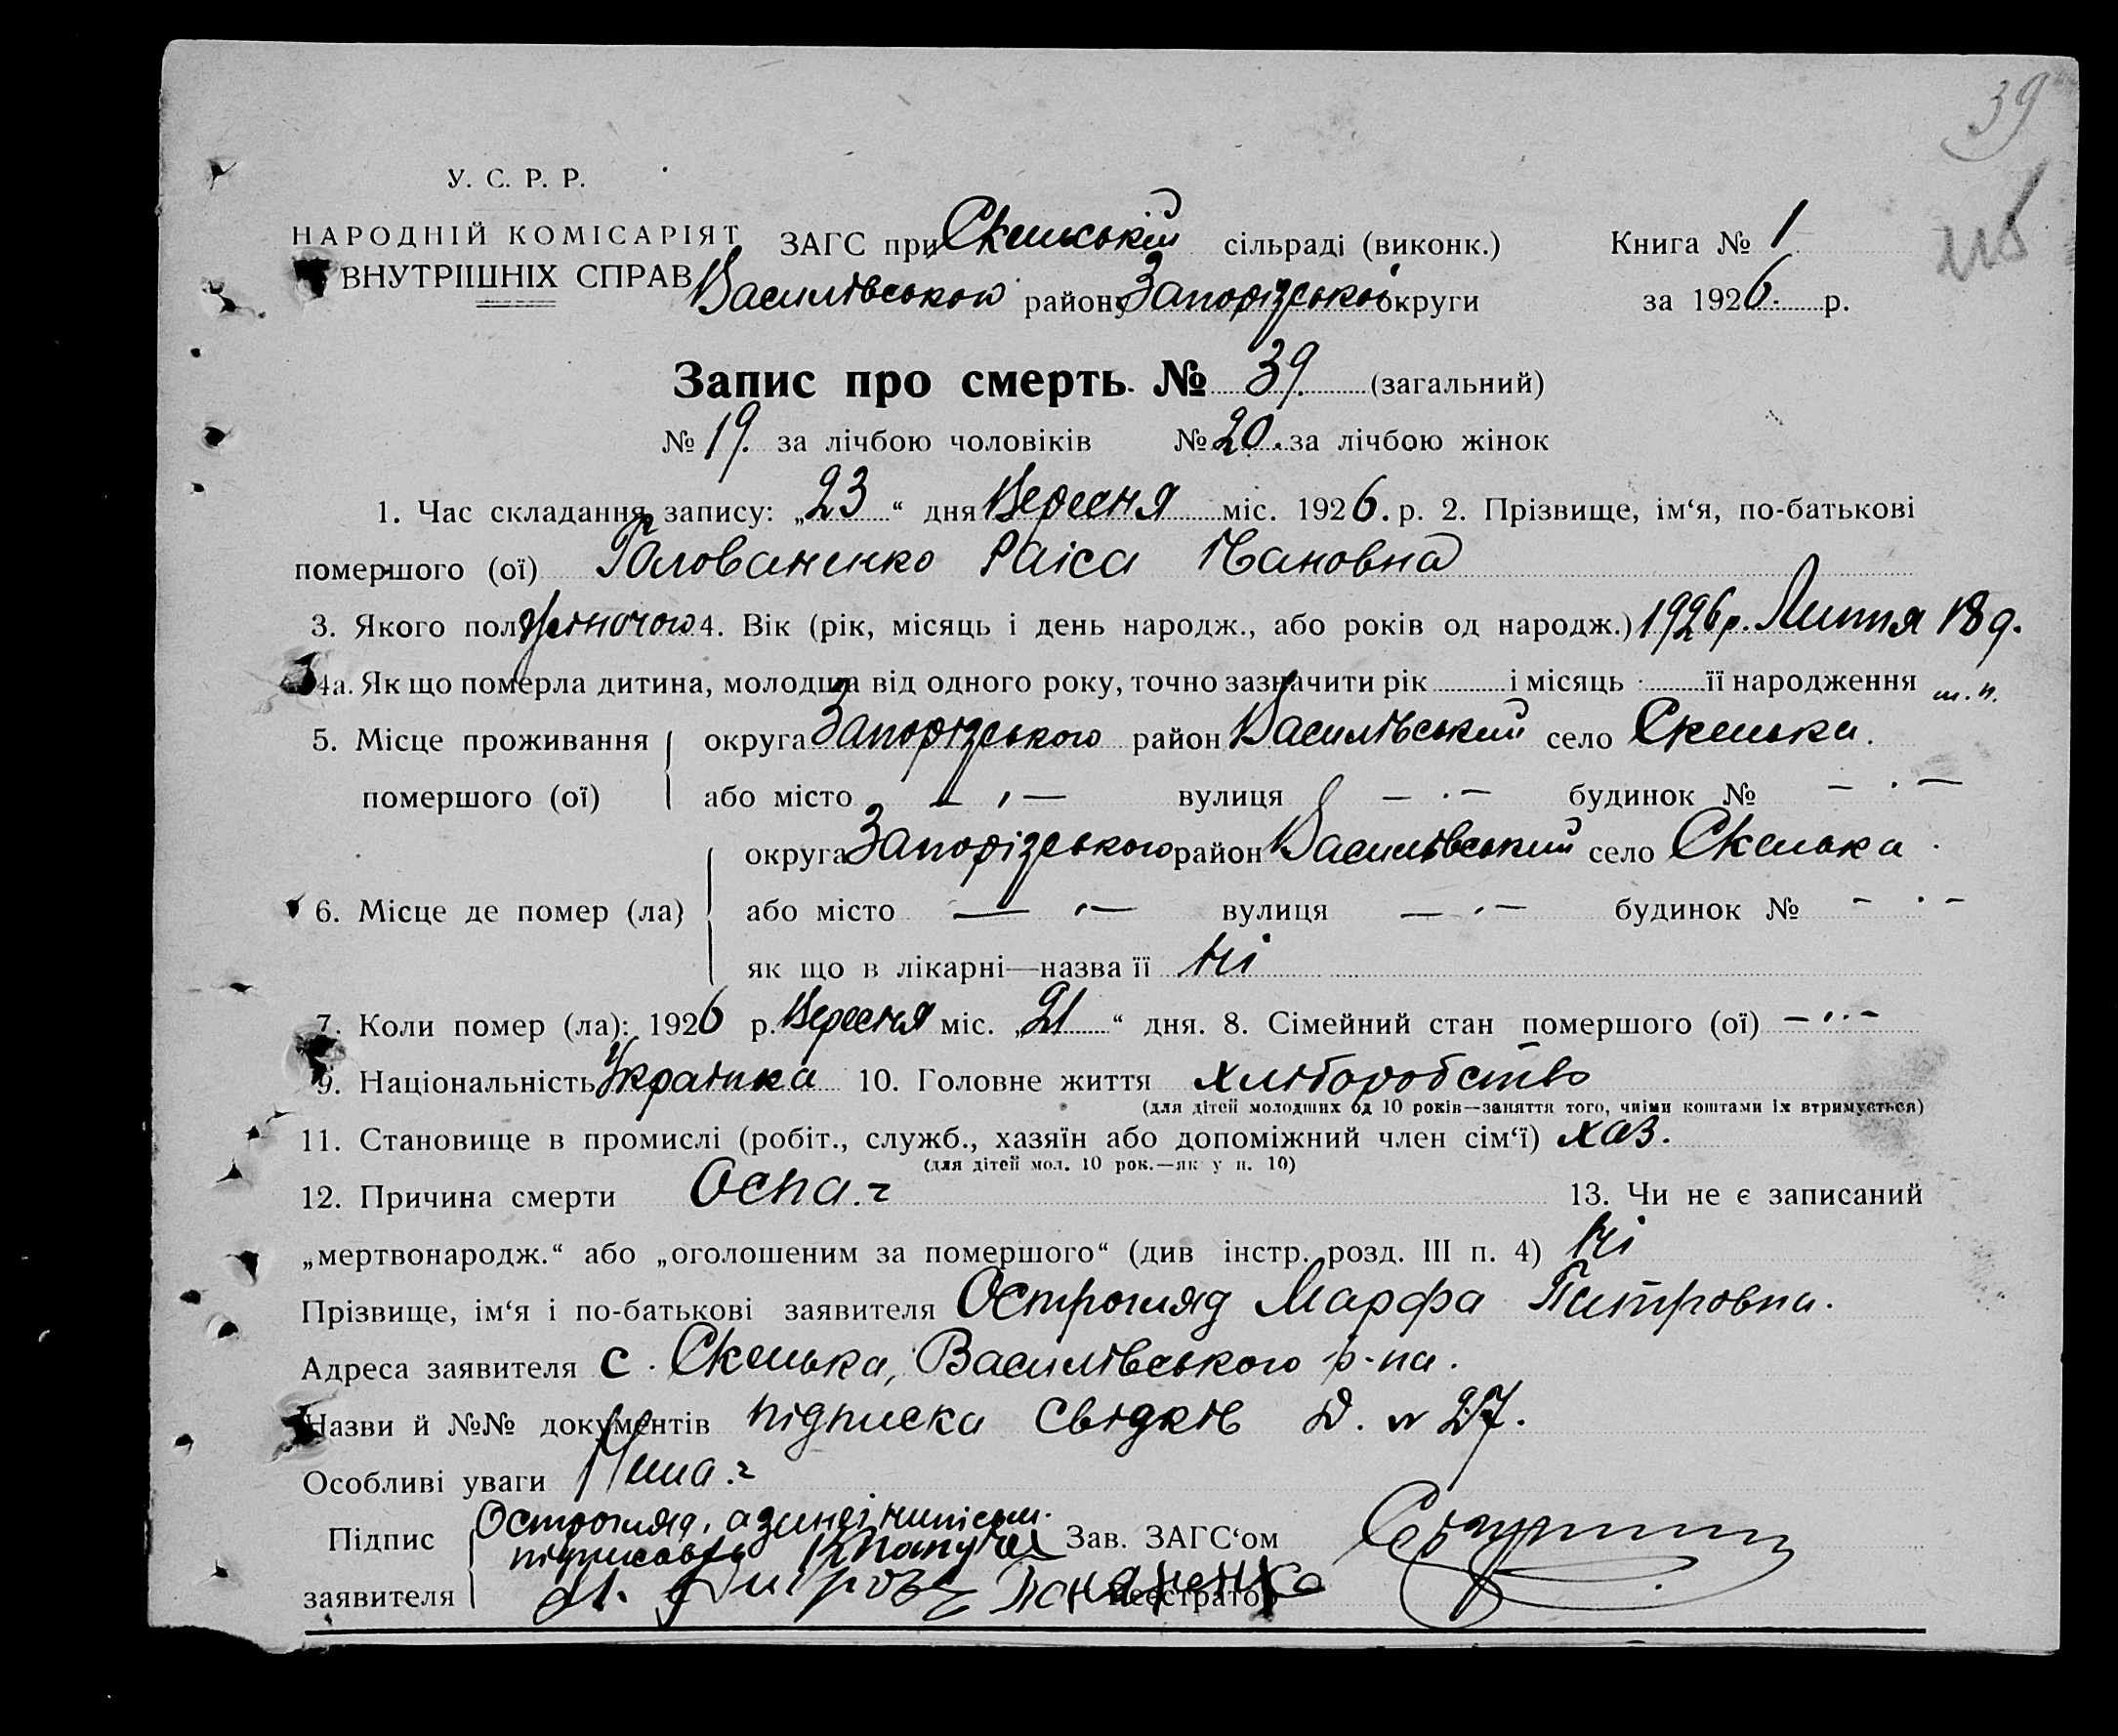 39
У. С. Р. Р.
НАРОДНІЙ КОМІСАРІЯТ
ВНУТРІШНІХ СПРАВ
ЗАГС при Скельській сільраді (виконк.) Книга № 1
Василівського району Запорізької округи за 1926. р.
Запис про смерть № 39. (загальний)
№ 19. за лічбою чоловіків № 20. за лічбою жінок
1. Час складання запису: „23“ дня Вересня міс. 1926. р. 2. Прізвище, ім‘я, по-батькові
помершого (ої) Голованенко Раіса Пановна
3. Якого пол жіночого 4. Вік (рік, місяць і день народж., або років од народж.) 1926 р. Липня 18 д.
4а. Як що померла дитина, молодша від одного року, точно зазначити рік і місяць її народження
5. Місце проживання округа Запорізького район Василівський село Скелька.
помершого (ої) або місто — „ — вулиця — „ — будинок № — „ —
округа Запорізького район Василівський село Скелька.
6. Місце де помер (ла) або місто — „ — вулиця — „ — будинок № — „ —
як що в лікарні—назва її ні
7. Коли помер (ла): 1926 р. Вересня міс. „21“ дня. 8. Сімейний стан помершого (ої) — „ —
9. Національність Украінка 10. Головне життя хліборобство
(для дітей молодших од 10 років—заняття того, чиїми коштами їх втримується)
11. Становище в промислі (робіт., служб., хазяїн або допоміжний член сім‘ї) хаз.
(для дітей мол. 10 рок.—як у п. 10)
12. Причина смерти Оспа. 13. Чи не є записаний
„мертвонародж.“ або „оголошеним за помершого“ (див інстр. розд. III п. 4) ні
Прізвище, ім‘я і по-батькові заявителя Остогляд Марфа Питровна.
Адреса заявителя с. Скелька, Василівського р-на.
Назви й №№ документів підписка свідків д. № 27.
Особливі уваги Нима.
Підпис Остогляд, а за неі Зав. ЗАГС‘ом
підписавсь
заявителя Реєстратор